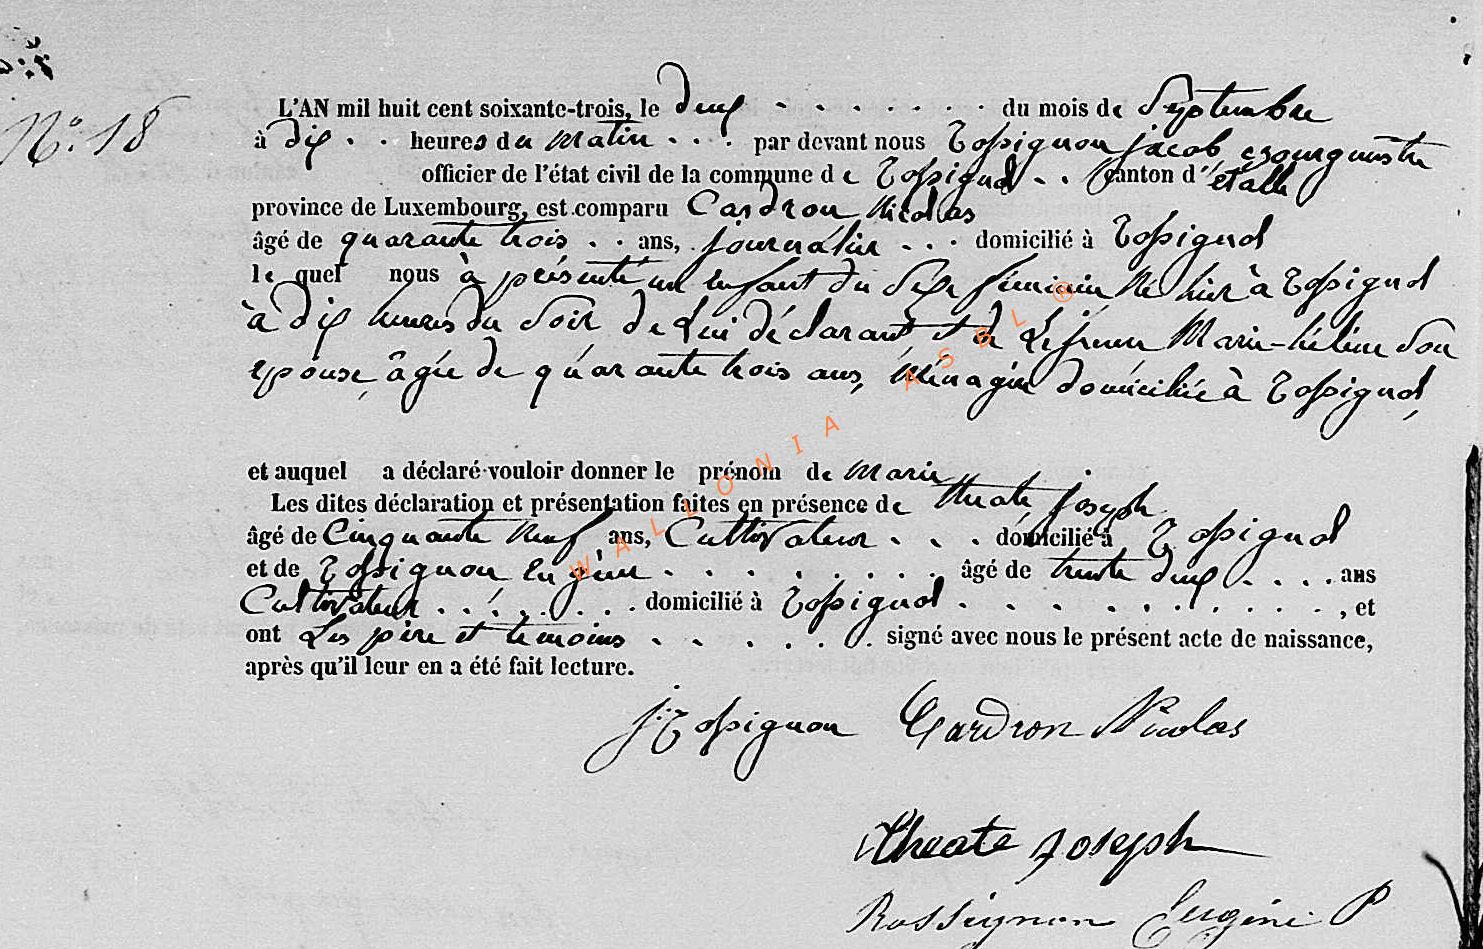 N°. 18
L'AN mil huit cent soixante-trois, le deux . . . . . . . . du mois de Septembre
à dix . . heures du matin . . . . par devant nous Rossignon jacob, bourgmestre
officier de l'état civil de la commune de Rossignol . . canton d'étalle
province de Luxembourg, est comparu Cardron Nicolas
âgé de quarante trois . . ans, journalier . . . domicilié à Rossignol
le quel nous à présenté un enfant du Sexe féminin Né hier à Rossignol
à dix heures du Soir de Lui déclarant et de Lejeune Marie-héléne Son
epouse, âgée de quarante trois ans, Ménagère domiciliée à Rossignol,
et auquel a déclaré vouloir donner le prénom de Marie
Les dites déclaration et présentation faites en présence de theate joseph
âgé de Cinquante Neuf ans, Cultivateur . . . domicilié à Rossignol
et de Rossignon Eugène . . . . . . . . . âgé de trente deux . . . . ans
Cultivateur . . . . . . . . domicilié à Rossignol . . . . . . . . . . . , et
ont Les père et temoins . . . . . . signé avec nous le présent acte de naissance,
après qu'il leur en a été fait lecture.
J. Rossignon Cardron Nicolas
theate Joseph
Rossignon Eugène P
WALLONIA ASBL ®